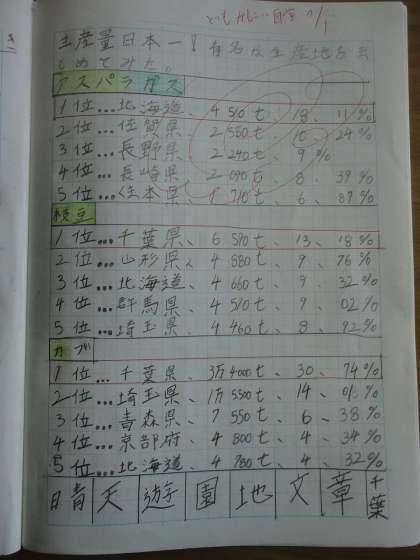 生産量日本一!有名な生産地をま
とめてみた。
アスパラガス
1位…北海道、4510t、18、11%
2位…佐賀県、2580t、10、24%
3位…長野県、2240t、9%
4位…長崎県、2090t、8、39%
5位…熊本県、1710t、6、87%
枝豆
1位…千葉県、6590t、13、18%
2位…山形県、4880t、9、76%
3位…北海道、4660t、9、32%
4位…群馬県、4510t、9、02%
5位…埼玉県、4460t、8、92%
カブ
1位…千葉県、3万4000t、30、74%
2位…埼玉県、1万5500t、14、01%
3位…青森県、7550t、6、38%
4位…京都府、4800t、4、34%
5位…北海道、4780t、4、32%
日青天遊園地文章千葉